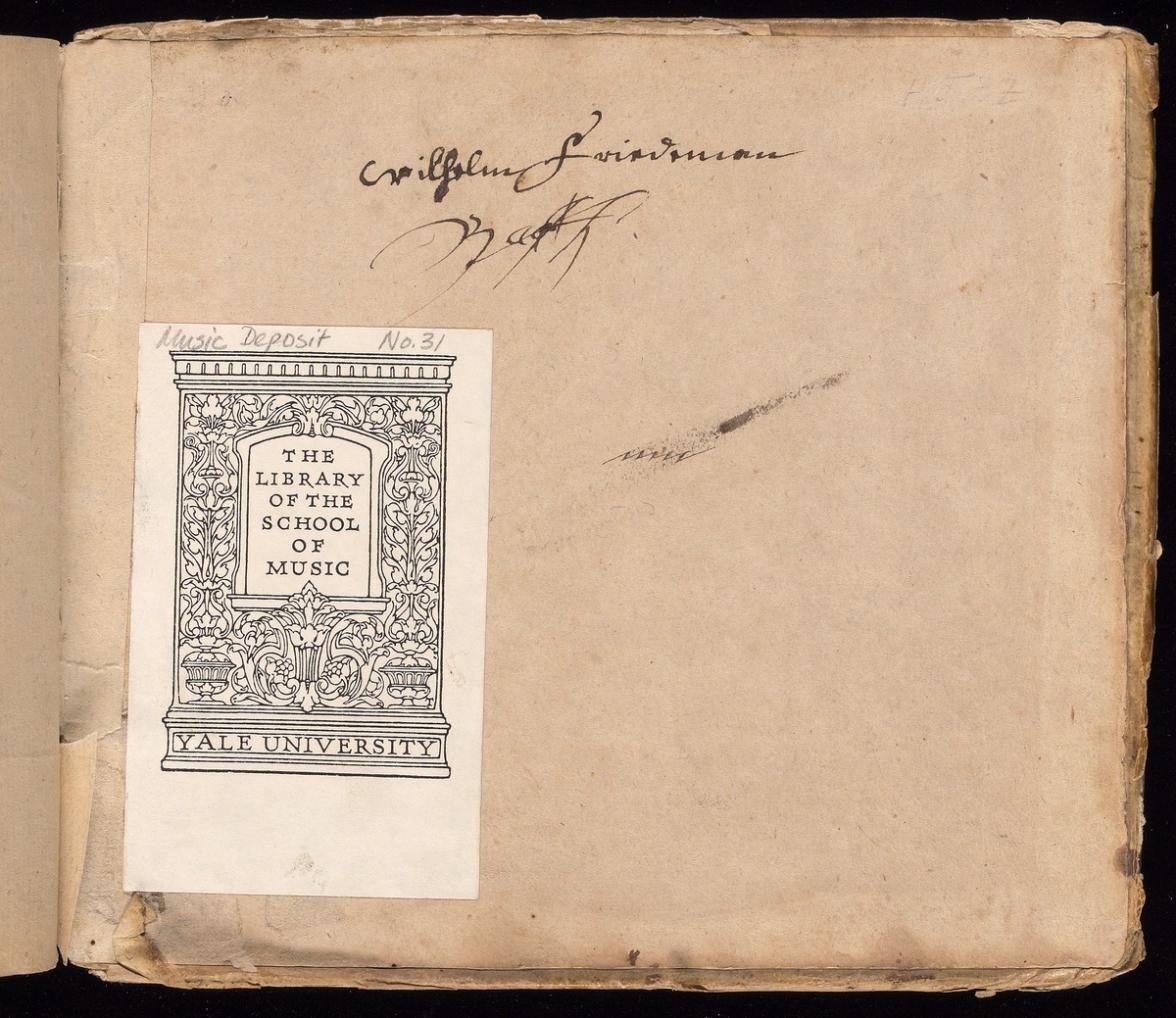 Wilhelm Friedeman
Bach
Music Deposit No. 31
THE
LIBRARY
OF THE
SCHOOL
OF
MUSIC
YALE UNIVERSITY